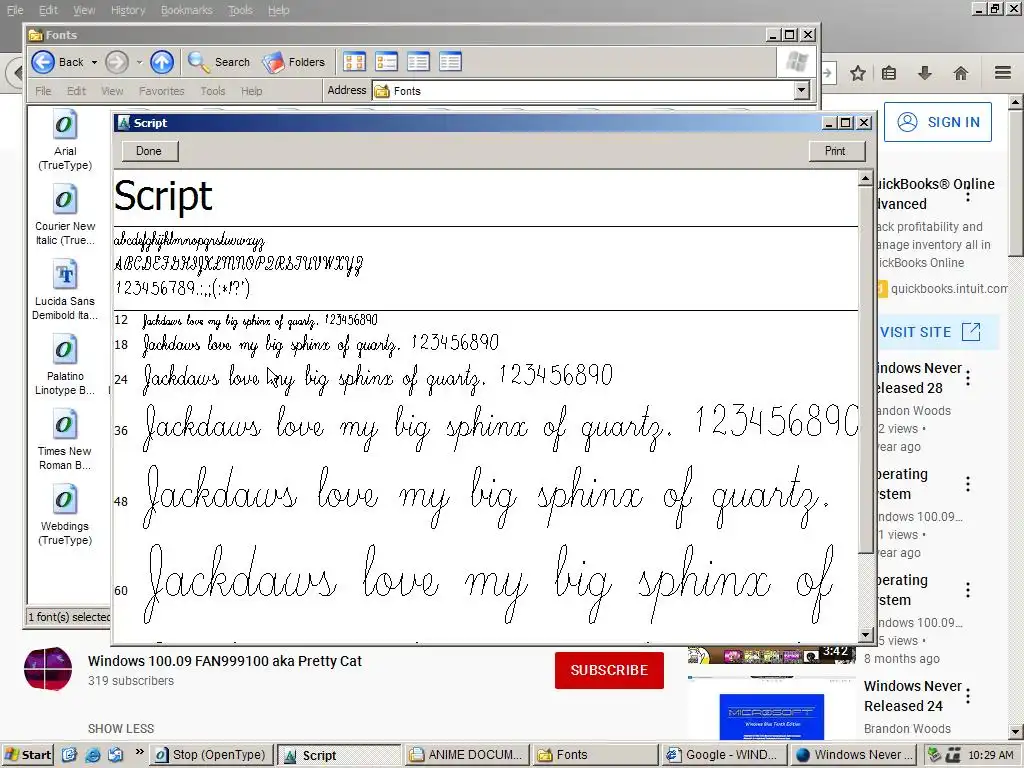 File Edit View History Bookmarks Tools Help
Fonts
Back Search Folders
File Edit View Favorites Tools Help Address Fonts
SIGN IN
Arial
(TrueType)
Courier New
Italic (True...
Lucida Sans
Demibold Ita...
Palatino
Linotype B...
Times New
Roman B...
Webdings
(TrueType)
1 font(s) selected
Script
Done Print
Script
abcdefghijklmnopqrstuvwxyz
ABCDEFGHIJKLMNOPQRSTUVWXYZ
123456789.:,;(:*!?')
12 Jackdaws love my big sphinx of quartz. 123456890
18 Jackdaws love my big sphinx of quartz. 123456890
24 Jackdaws love my big sphinx of quartz. 123456890
36 Jackdaws love my big sphinx of quartz. 123456890
48 Jackdaws love my big sphinx of quartz.
60 Jackdaws love my big sphinx of
uickBooks® Online
dvanced
ack profitability and
anage inventory all in
uickBooks Online
quickbooks.intuit.com
VISIT SITE
indows Never
eleased 28
andon Woods
2 views •
year ago
perating
ystem
ndows 100.09...
1 views •
year ago
perating
ystem
ndows 100.09...
5 views •
8 months ago
3:42
Windows Never
Released 24
Brandon Woods
MICROSOFT
Windows Blue Tenth Edition
Windows 100.09 FAN999100 aka Pretty Cat
319 subscribers
SUBSCRIBE
SHOW LESS
Start » Stop (OpenType) Script ANIME DOCUM... Fonts Google - WIND... Windows Never ... 10:29 AM